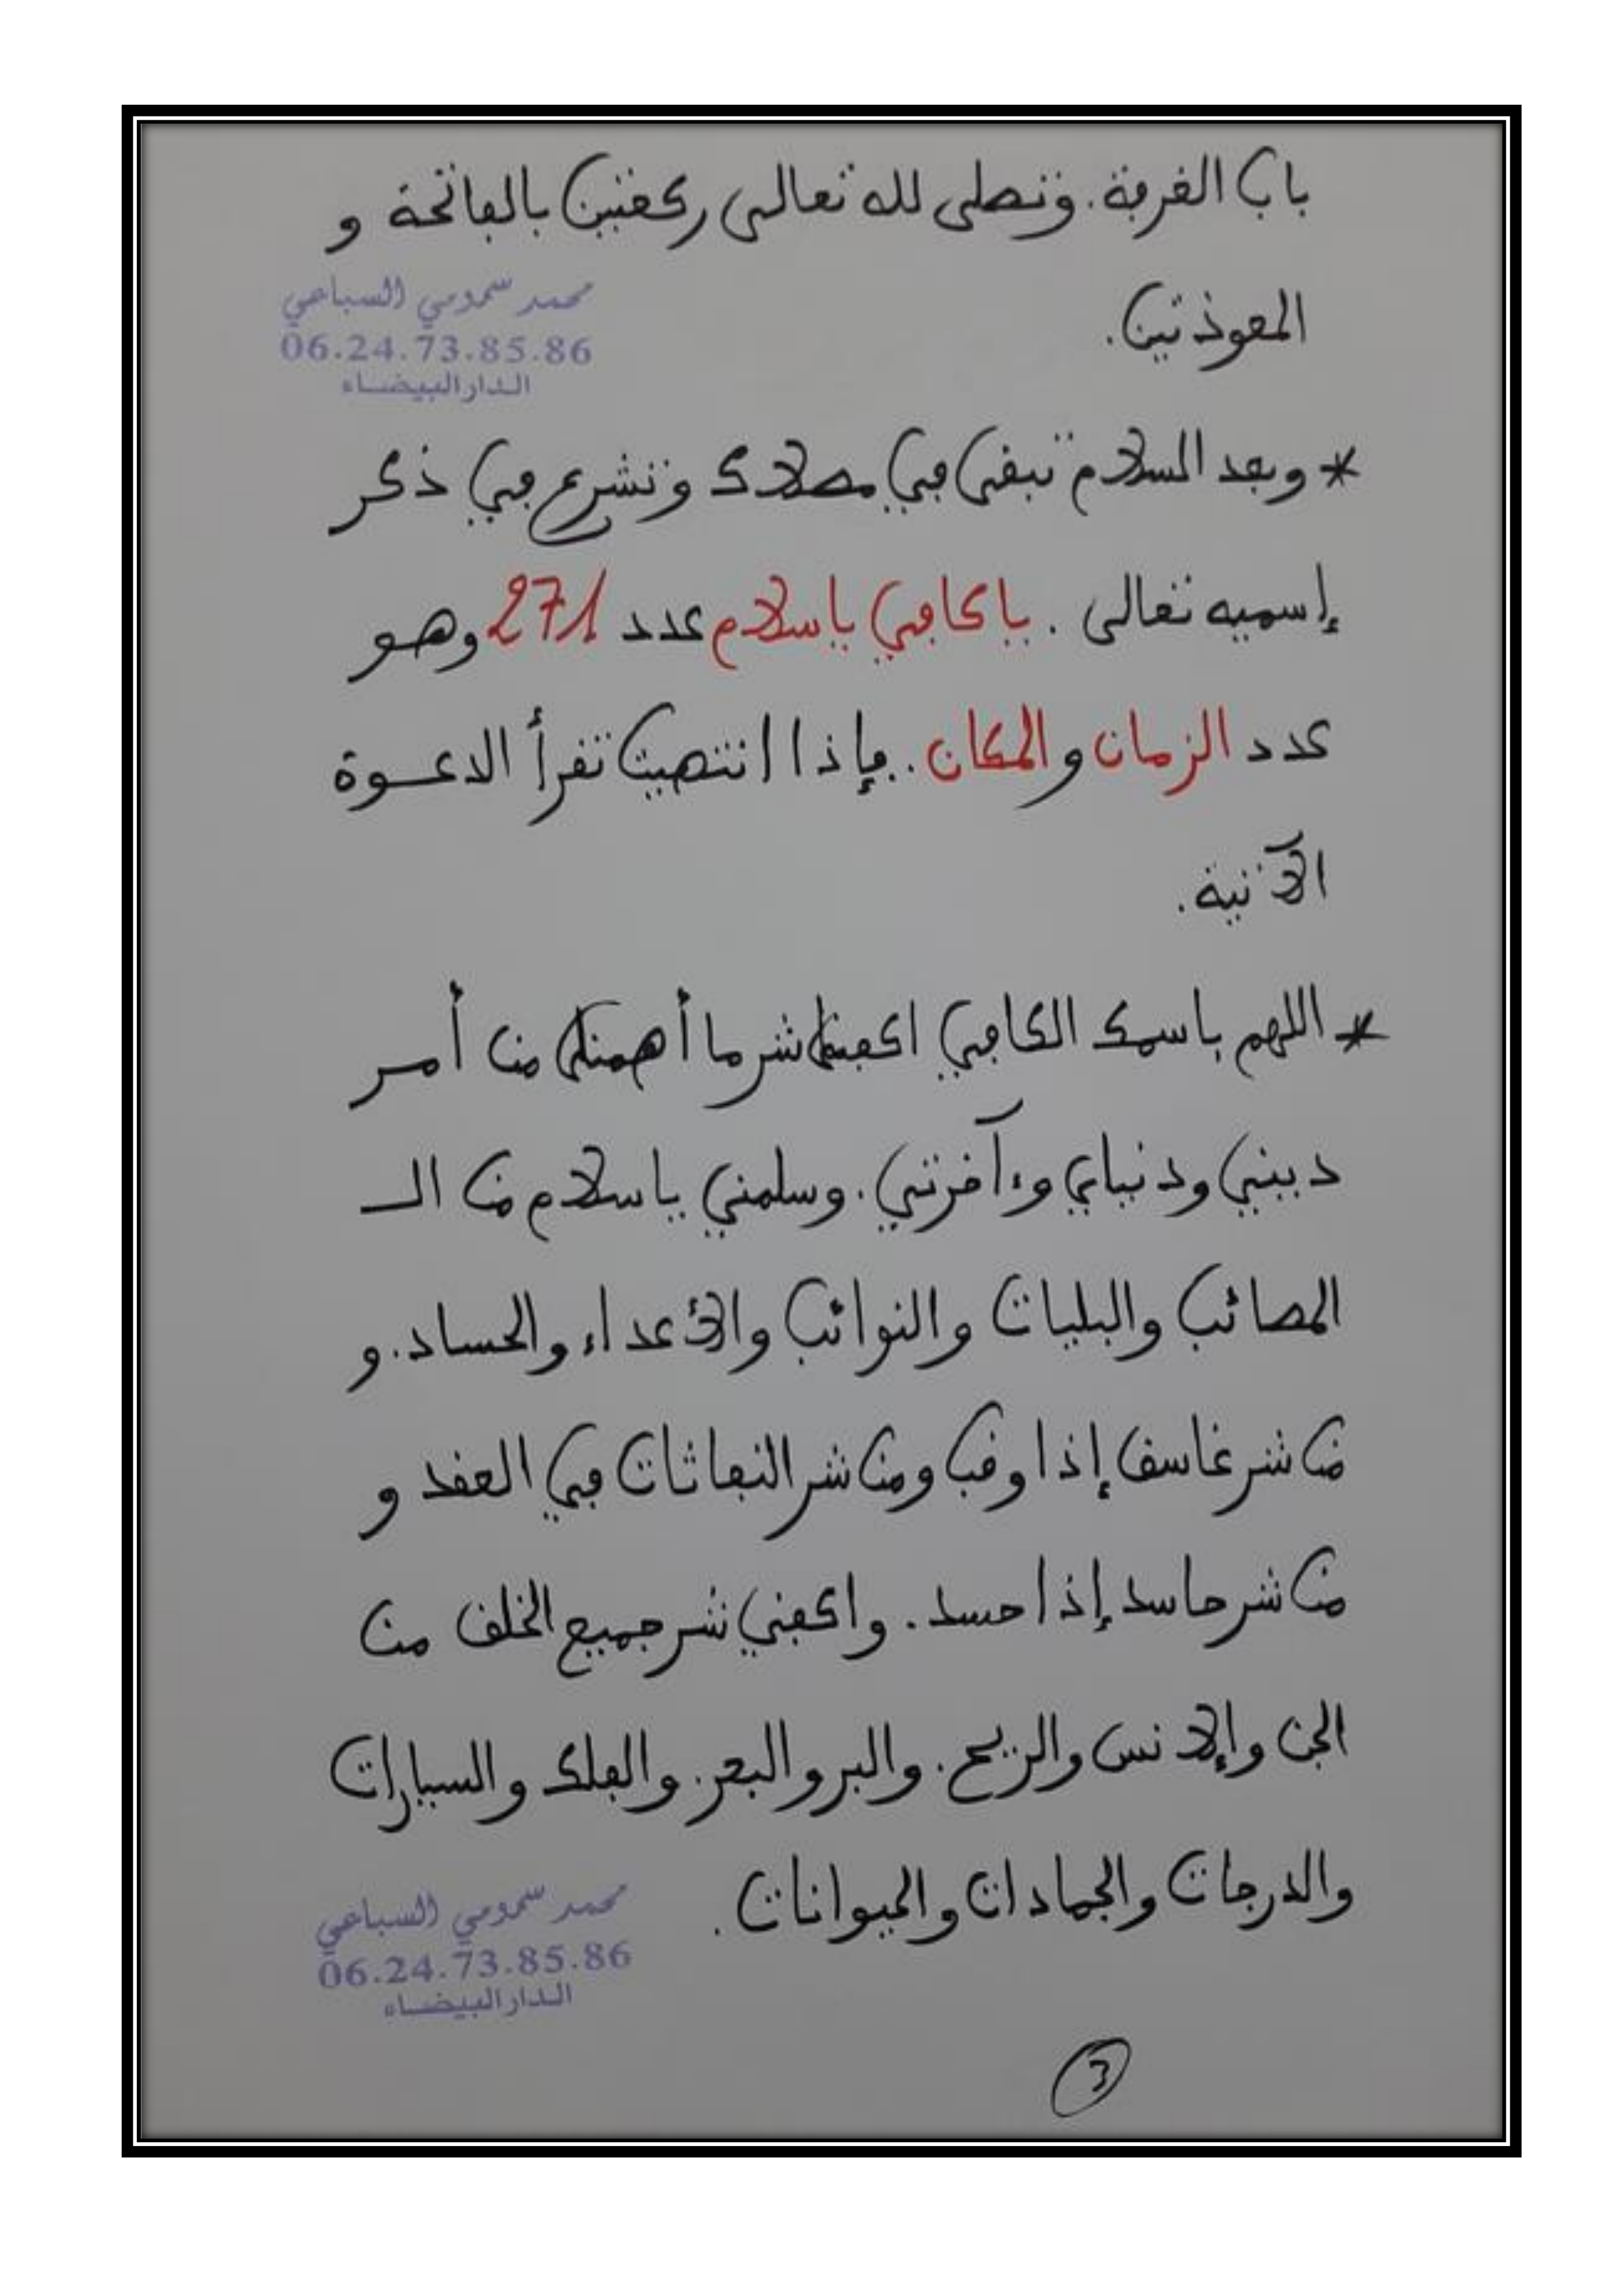 باب الغرفة. وتصلى لله تعالى ركعتين بالفاتحة و
المعوذتين.
محمد سمومي السباعي
06.24.73.85.86
الدار البيضاء
* وبعد السلام تبقى في مصلاك وتشرع في ذكر
إسميه تعالى . يا كافي يا سلام عدد 271 وهو
عدد الزمان والمكان .. فإذا انتهيت تقرأ الدعوة
الآتية.
* اللهم باسمك الكافي اكفني شر ما أهمني من أمر
ديني ودنياي وءآخرتي. وسلمني يا سلام من الـ
المصائب والبليات والنوائب والأعداء والحساد. و
من شر غاسق إذا وقب ومن شر النفاثات في العقد و
من شر حاسد إذا حسد. واكفني شر جميع الخلق من
الجن والإنس والريح. والبر والبحر. والفلك والسيارات
والدرجات والجمادات والحيوانات.
محمد سمومي السباعي
06.24.73.85.86
الدار البيضاء
3